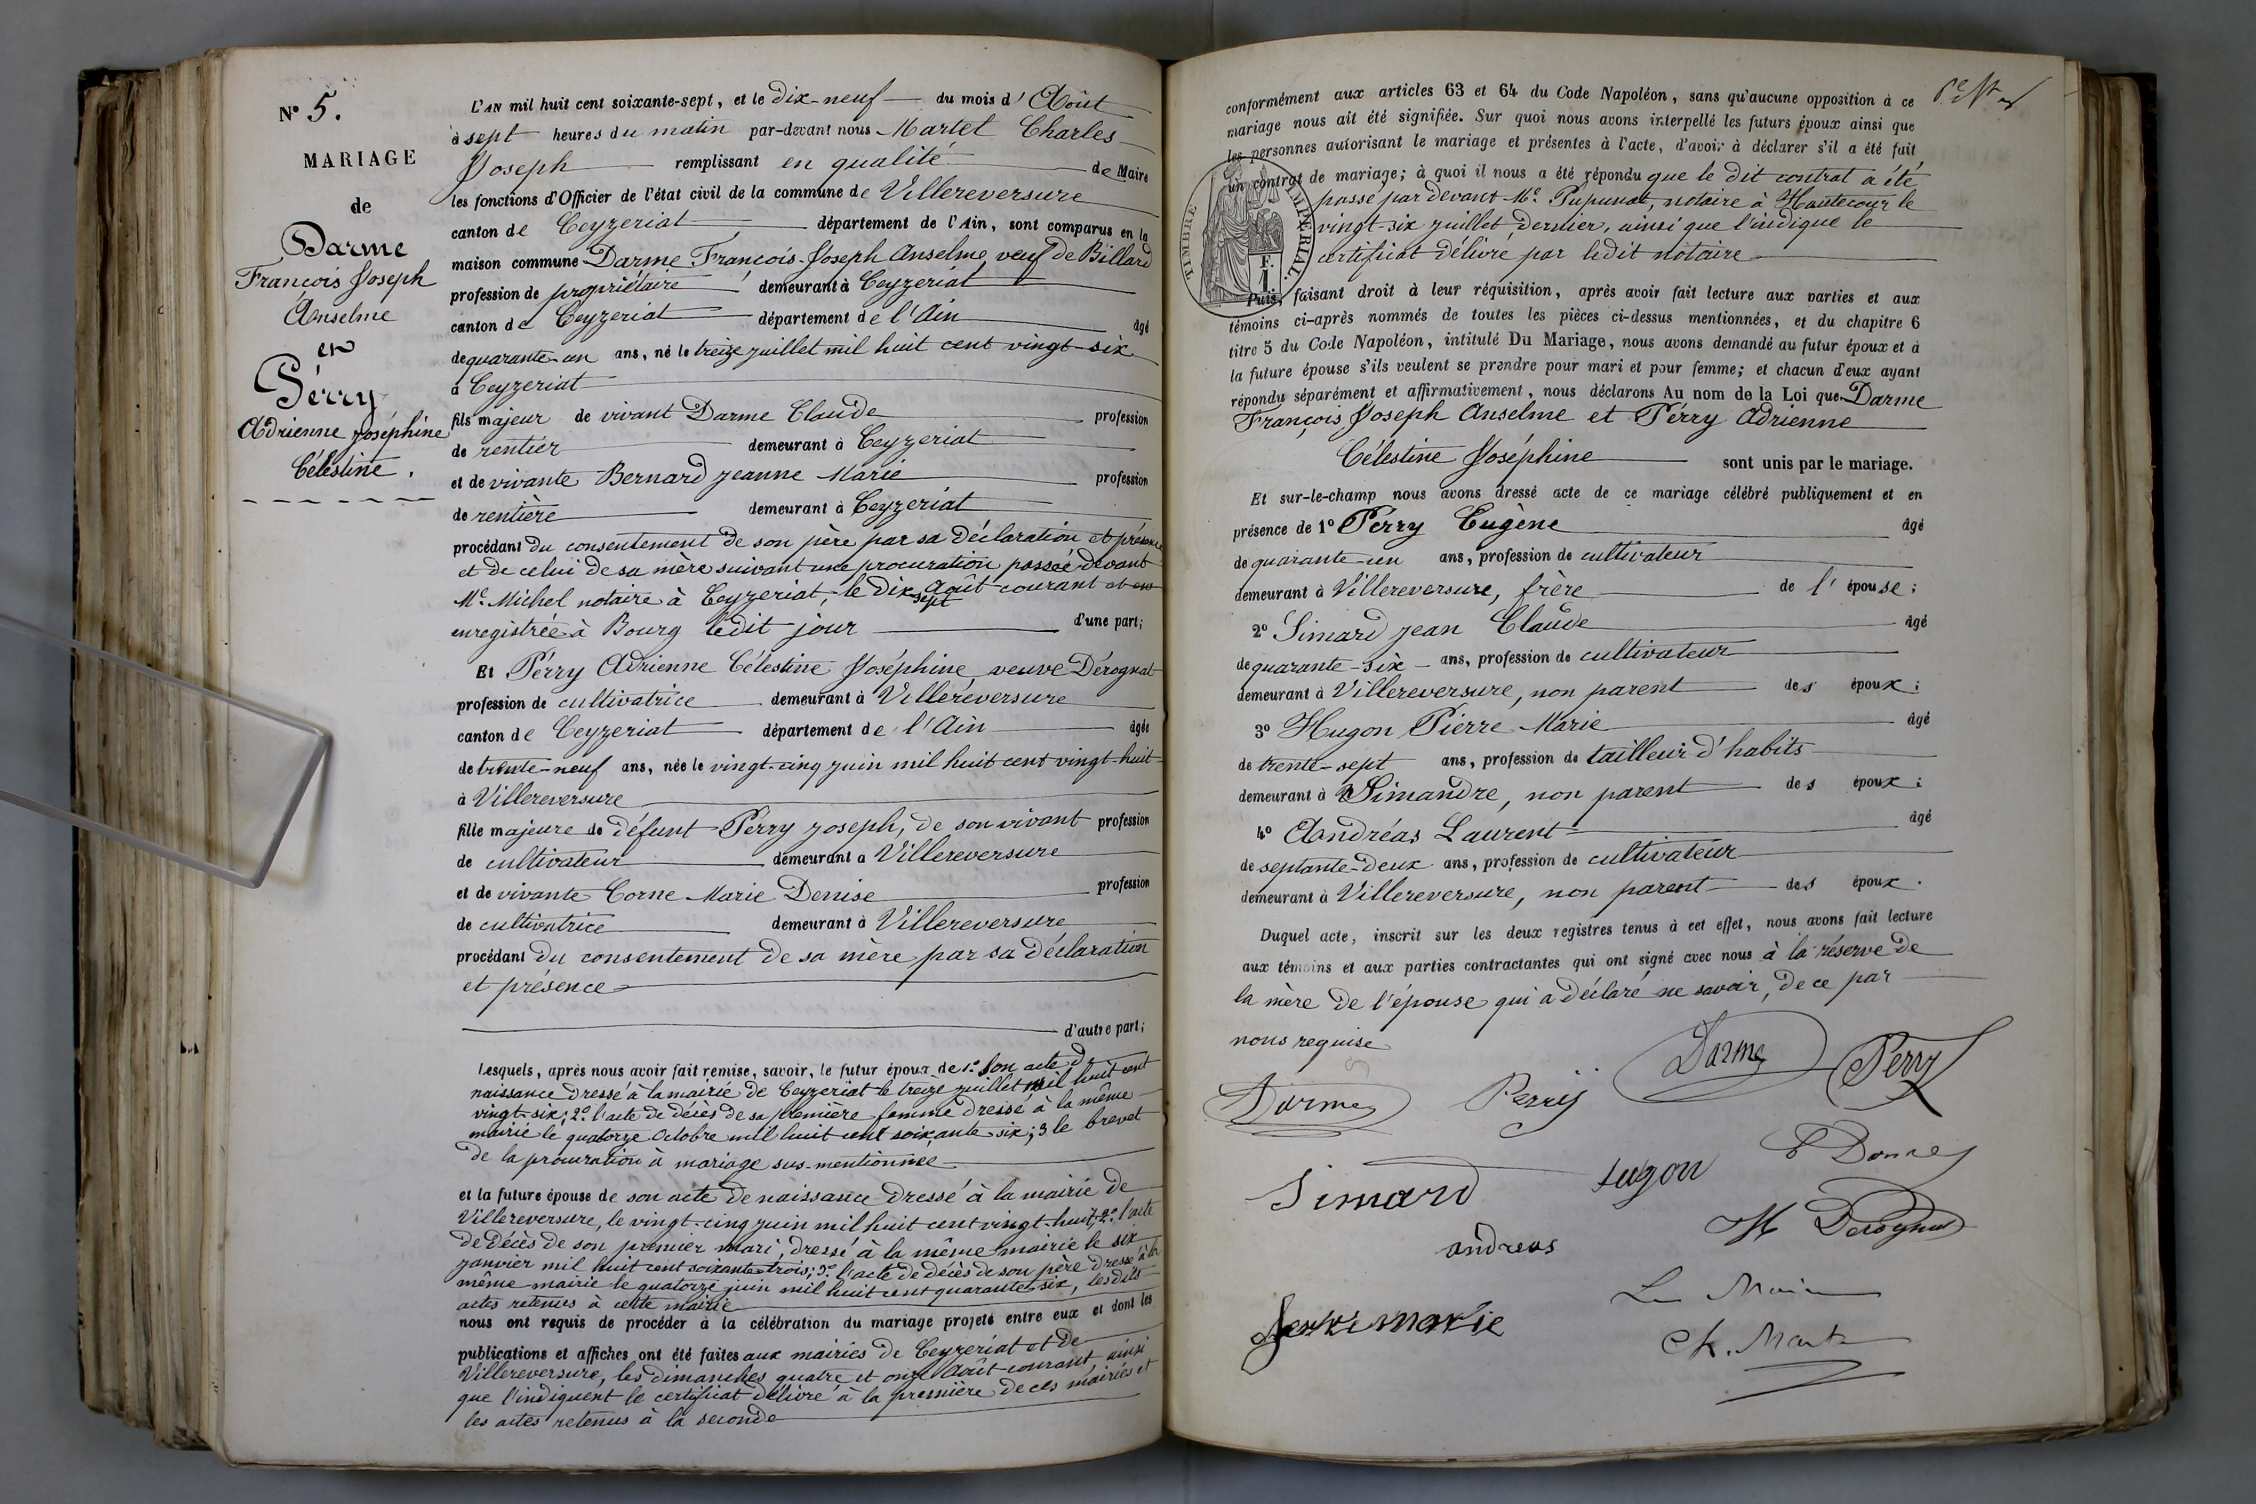 N° 5.
MARIAGE
de
Darme
François Joseph
Anselme
et
Pérry
Adrienne Joséphine
Célestine.
L'AN mil huit cent soixante-sept, et le dix-neuf du mois d'Août
à sept heures du matin par-devant nous Martel Charles
Joseph remplissant en qualité de Maire
les fonctions d'Officier de l'état civil de la commune de Villereversure
canton de Ceyzeriat département de l'Ain, sont comparus en la
maison commune Darme François-Joseph Anselme, veuf de Billard
profession de propriétaire demeurant à Ceyzeriat
canton de Ceyzeriat département de l'Ain âgé
de quarante-un ans, né le treize juillet mil huit cent vingt-six
à Ceyzeriat
fils majeur de vivant Darme Claude profession
de rentier demeurant à Ceyzeriat
et de vivante Bernard Jeanne Marie profession
de rentière demeurant à Ceyzeriat
procédant du consentement de son père par sa déclaration et présence
et de celui de sa mère suivant une procuration passée devant
Me. Michel notaire à Ceyzeriat, le dix sept Août courant et
enregistrée à Bourg ledit jour d'une part;
Et Pérry Adrienne Célestine Joséphine, veuve Dérognat
profession de cultivatrice demeurant à Villereversure
canton de Ceyzeriat département de l'Ain âgée
de trente-neuf ans, née le vingt-cinq juin mil huit cent vingt-huit
à Villereversure
fille majeure de défunt Pérry Joseph, de son vivant profession
de cultivateur demeurant à Villereversure
et de vivante Corne Marie Denise profession
de cultivatrice demeurant à Villereversure
procédant du consentement de sa mère par sa déclaration
et présence
d'autre part;
Lesquels, après nous avoir fait remise, savoir, le futur époux de 1° Son acte de
naissance dressé à la mairie de Ceyzeriat le treize juillet mil huit cent
vingt-six; 2° l'acte de décès de sa première femme dressé à la même
mairie le quatorze Octobre mil huit cent soixante-six; 3 le brevet
de la procuration à mariage sus-mentionnée
et la future épouse de son acte de naissance dressé à la mairie de
Villereversure, le vingt-cinq juin mil huit cent vingt-huit; 2° l'acte
de décès de son premier mari, dressé à la même mairie le six
janvier mil huit cent soixante-trois; 3° l'acte de décès de son père dressé à la
même mairie le quatorze juin mil huit cent quarante-six, lesdits
actes retenus à cette mairie
nous ont requis de procéder à la célébration du mariage projeté entre eux et dont les
publications et affiches ont été faites aux mairies de Ceyzeriat et de
Villereversure, les dimanches quatre et onze Août courant, ainsi
que l'indiquent le certificat délivré à la première de ces mairies et
les actes retenus à la seconde
conformément aux articles 63 et 64 du Code Napoléon, sans qu'aucune opposition à ce
mariage nous ait été signifiée. Sur quoi nous avons interpellé les futurs époux ainsi que
les personnes autorisant le mariage et présentes à l'acte, d'avoir à déclarer s'il a été fait
un contrat de mariage; à quoi il nous a été répondu que le dit contrat a été
passé par devant Me. Pupunat, notaire à Hautecour le
vingt-six juillet dernier, ainsi que l'indique le
certificat délivré par ledit notaire
TIMBRE IMPERIAL.
F.
1.
Puis, faisant droit à leur réquisition, après avoir fait lecture aux parties et aux
témoins ci-après nommés de toutes les pièces ci-dessus mentionnées, et du chapitre 6
titre 5 du Code Napoléon, intitulé Du Mariage, nous avons demandé au futur époux et à
la future épouse s'ils veulent se prendre pour mari et pour femme; et chacun d'eux ayant
répondu séparément et affirmativement, nous déclarons Au nom de la Loi que Darme
François Joseph Anselme et Pérry Adrienne
Célestine Joséphine sont unis par le mariage.
Et sur-le-champ nous avons dressé acte de ce mariage célébré publiquement et en
présence de 1° Pérry Eugène âgé
de quarante-un ans, profession de cultivateur
demeurant à Villereversure, frère de l'épouse;
2° Simard Jean Claude âgé
de quarante-six ans, profession de cultivateur
demeurant à Villereversure, non parent des époux;
3° Hugon Pierre Marie âgé
de trente-sept ans, profession de tailleur d'habits
demeurant à Simandre, non parent des époux;
4° Andréas Laurent âgé
de septante-deux ans, profession de cultivateur
demeurant à Villereversure, non parent des époux.
Duquel acte, inscrit sur les deux registres tenus à cet effet, nous avons fait lecture
aux témoins et aux parties contractantes qui ont signé avec nous à la réserve de
la mère de l'épouse qui a déclaré ne savoir, de ce par
nous requise
Darme Perry
Darme Perry
Simard hugon
andreas
Le Maire
Ch. Martel